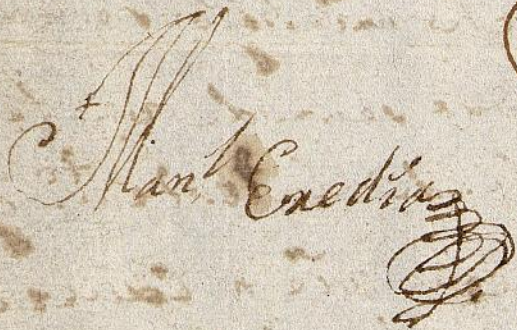 Man.l Eredia